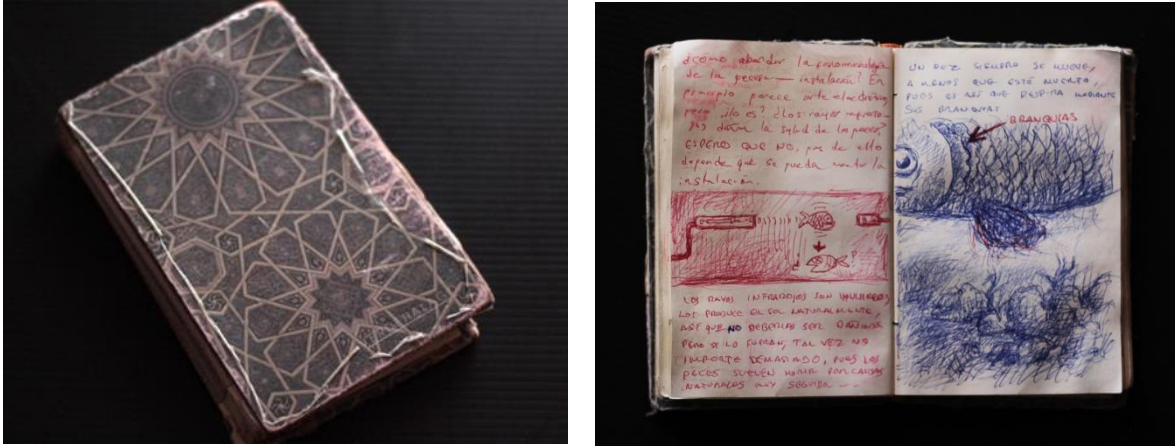 ¿Cómo abordar la fenomenología
de la pecera — instalación? En
principio parece arte electrónico,
pero ¿lo es? ¿Los rayos infrarro-
jos dañan la salud de los peces?
ESPERO QUE NO, pues de ello
depende que se pueda montar la
instalación.
LOS RAYOS INFRARROJOS SON
LOS PRODUCE EL SOL NATURALMENTE,
ASÍ QUE NO DEBERÍAN SER DAÑINOS
PERO SI LO FUERAN, TAL VEZ NO
IMPORTE DEMASIADO, PUES LOS
PECES SUELEN MORIR POR CAUSAS
NATURALES MUY SEGUIDO
UN PEZ SIEMPRE SE MUEVE,
A MENOS QUE ESTÉ MUERTO,
PUES ES ASÍ QUE RESPIRA MEDIANTE
SUS BRANQUIAS
BRANQUIAS